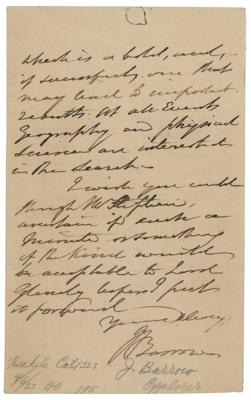 which is a bold, and,
if successful, one that
may lead to important
results. At all Events
Geography and physical
Science are interested
in the search—
I wish you would
through Mr
ascertain if such a
Minute or something
of the kind would
be acceptable to Lord
Glenelg before I put
it forward
Yours always
J Barrow
Cat 1523
J. Barrow
Explorer